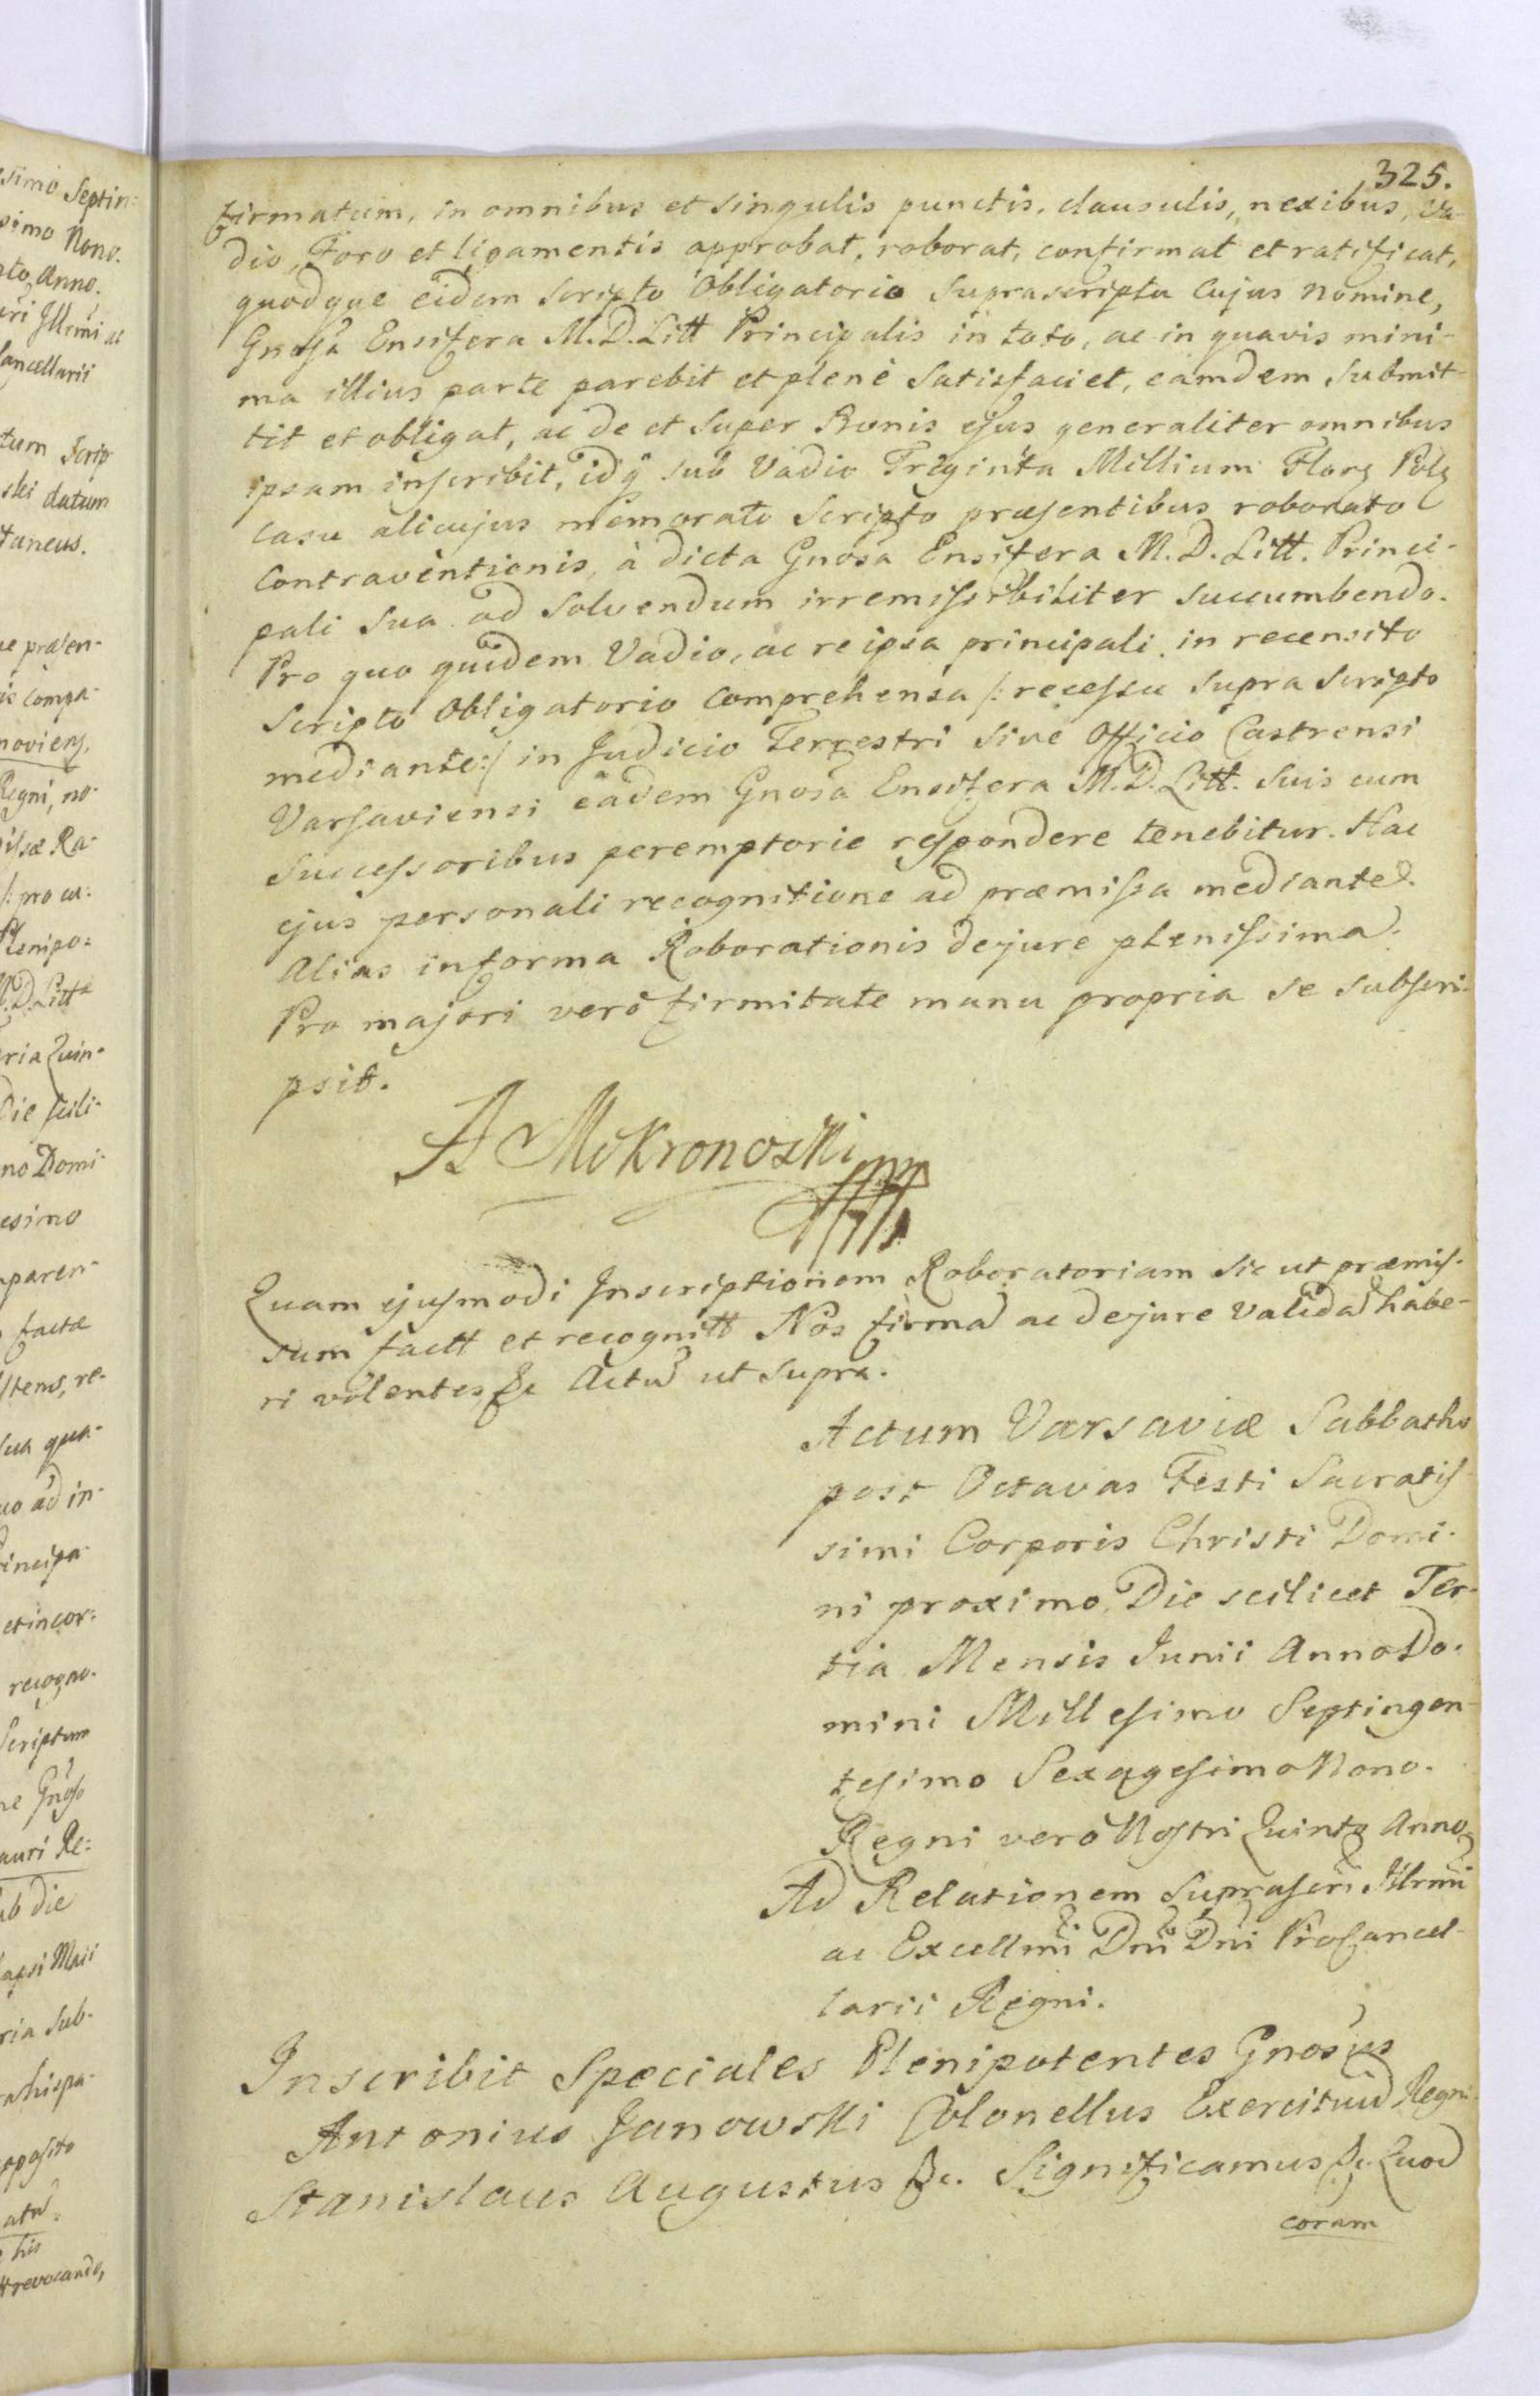 325.
firmatum, in omnibus et singulis punctis, clausulis, nexibus, Va-
dio, Foro et ligamentis approbat, roborat, confirmat et ratificat,
quodque eidem Scripto Obligatorio Suprascripto cujus nomine,
Gnosa Ensifera M.D.Litt Principalis in toto, ac in quavis mini-
ma illius parte parebit et plenè Satisfaciet, eamdem submit-
tit et obligat, ac de et Super Bonis ejus generaliter omnibus
ipsam inscribit, idq sub Vadio Triginta Millium Flor Pol
casu alicujus memorato Scripto præsentibus roborato
Contraventionis, à dicta Gnosa Ensifera M.D. Litt. Princi-
pali Sua ad Solvendum irremissibiliter succumbendo.
Pro quo quidem Vadio, ac re ipsa principali in recensito
Scripto Obligatorio Comprehensa /: recessu Supra Scripto
mediante :/ in Judicio Terrestri sive Officio Castrensi
Varsaviensi eadem Gnosa Ensifera M.D. Litt. suis cum
Successoribus peremptorie respondere tenebitur. Hac
ejus personali recognitione ad præmissa mediante.
Alias in forma Roborationis de jure plenissima.
Pro majori verò firmitate manu propria se subscri-
psit.
A Mokronoski
Quam ejusmodi Inscriptionem Roboratoriam sic ut præmis-
sum factt et recognitt Nos firma ac de jure valida habe-
ri volentes &c Actu ut supra.
Actum Varsaviæ Sabbatho
post Octavas Festi Sacratis-
simi Corporis Christi Domi-
ni proximo Die scilicet Ter-
tia Mensis Junii Anno Do-
mini Millesimo Septingen-
tesimo Sexagesimo Nono.
Regni verò Nostri Quinto Anno
Ad Relationem Suprascri Illrmi
ac Excellmi Dni Dni ProCancel-
larii Regni.
Inscribit Speciales Plenipotentes Gnosus
Antonius Janowski Colonellus Exercituu Regni
Stanislaus Augustus &c. Significamus &c. Quod
coram
simo Septin-
simo Nono.
nto Anno.
uri Illrmi ac
ancellarii
tum Scrip
ski datum
taneus.
ue præsen-
is compa-
Regni, no-
/: pro cu-
Plenipo-
D. Litt
ria Quin-
Die scili-
no Domi-
esimo
mparen-
factæ
stens, re-
sua qua-
uo ad in-
rincipa-
et in cor-
recogno-
Scriptum
ne Gnoso
auri Re-
ub die
apsi Maii
ria sub-
pposito
his
revocando,